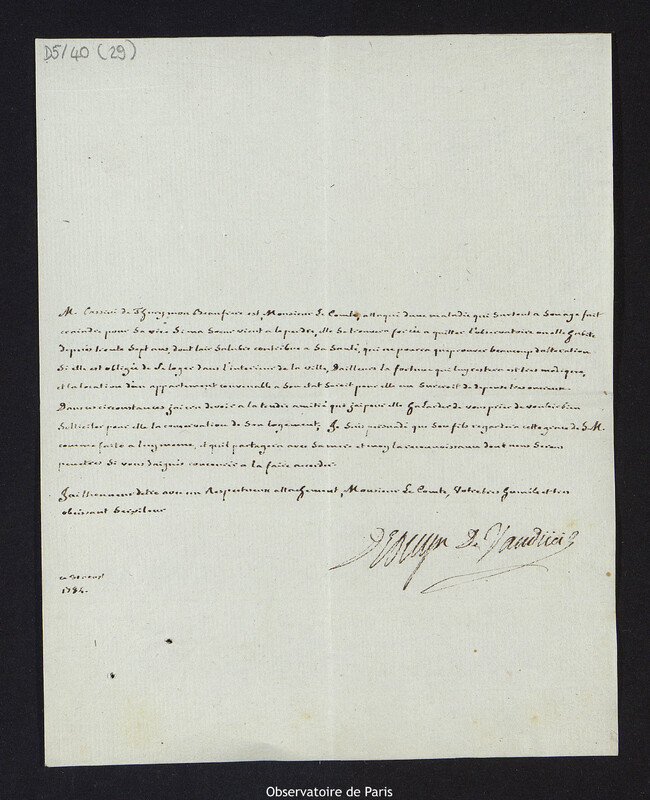 D5/40 (29)
M. Cassini de Thury mon Beaufrere est, Monsieur Le Comte, attaqué d'une maladie qui surtout a son age fait
craindre pour sa vie. Si ma Soeur vient a le perdre, elle se trouvera forcée a quitter l'observatoire ou elle habite
depuis trente sept ans, dont l'air salubre contribue a sa Santé, qui ne pourra qu'eprouver beaucoup d'alteration
si elle est obligée de se loger dans l'interieur de la ville, D'ailleurs la fortune qui luy restera est tres modique,
et la location d'un appartement convenable a son etat seroit pour elle un surcroit de depense tres onereux.
Dans ces circonstances j'ai cru devoir a la tendre amitié que j'ai pour elle hazarder de vous prier de vouloir bien
solliciter pour elle la conservation de son logement; Je suis persuadé que son fils regardera cette grace de S. M.
comme faite a luy meme, et qu'il partagera avec sa mere et moy la reconnoissance dont nous serons
penetrés si vous daignés concourir a la faire accorder.
J'ai l'honneur d'etre avec un Respectueux attachement, Monsieur Le Comte, Votre tres humble et tres
obeissant Serviteur
De Vaudreuil
ce 31
1784.
Observatoire de Paris